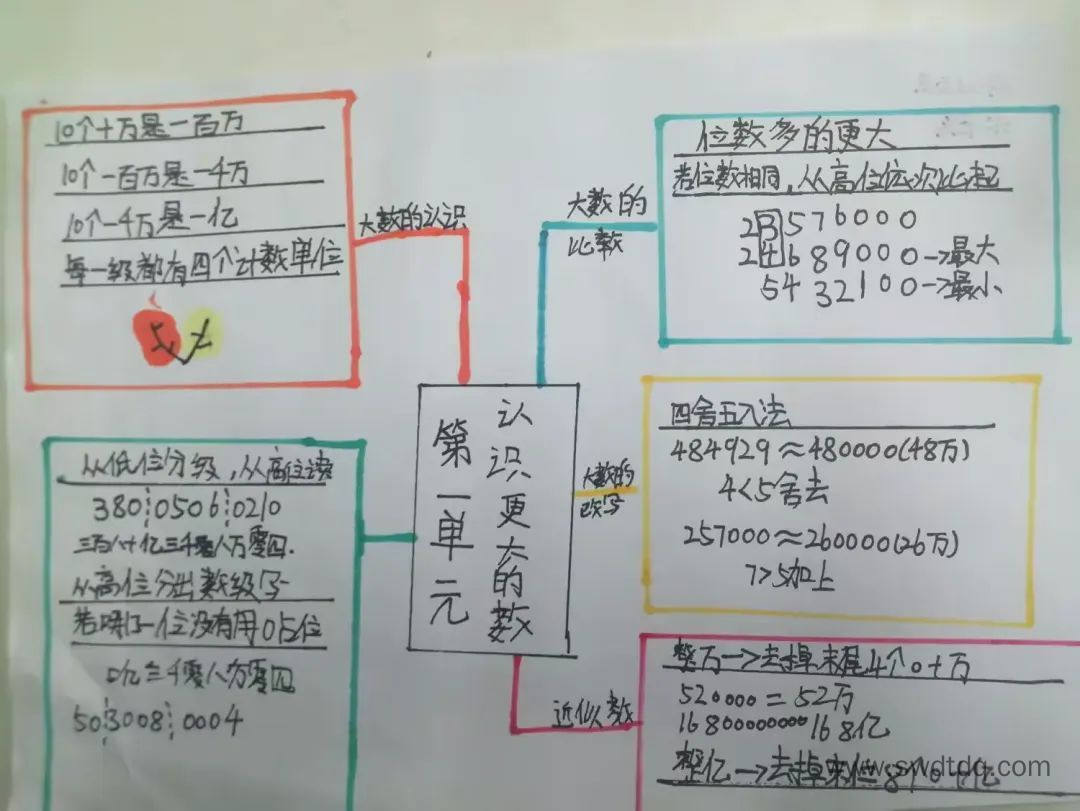 10个十万是一百万
10个一百万是一千万
10个一千万是一亿
每一级都有四个计数单位
大数的认识
位数多的更大
若位数相同，从高位依次比起
23576000
24689000→最大
5432100→最小
大数的
比数
第一单元
认识更大的数
四舍五入法
484929≈480000(48万)
4<5舍去
257000≈260000(26万)
7>5加上
大数的
改写
从低位分级，从高位读
380 0506 0210
从高位分出数级写
若哪一位没有用0占位
亿三千零八万零四
50 3008 0004
近似数
整万→去掉末尾4个0+万
520000=52万
16800000000 168亿
整亿→去掉末位8个0+亿
www.swdtdq.com